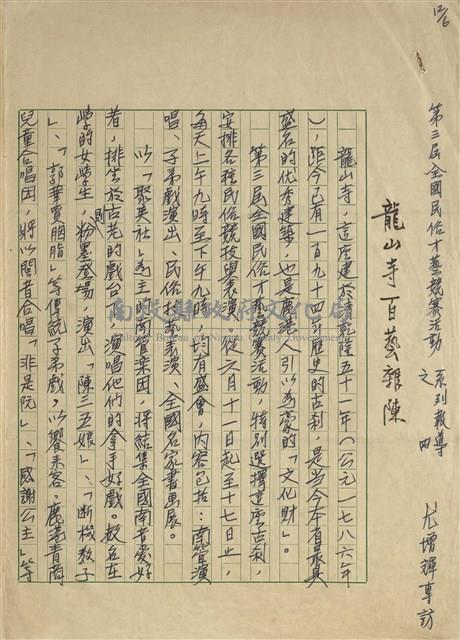 12/6
第三屆全國民俗才藝競賽活動
系列報導
之四
龍山寺百藝雜陳
尤增輝專訪
龍山寺，這座建於清乾隆五十一年（公元一七八六年
），距今已有一百九十四年歷史的古刹，是當今本省最具
盛名的優秀建築，也是鹿港人引以為豪的「文化財」。
第三屆全國民俗才藝競賽活動，特別選擇這座古刹，
安排各種民俗競技與表演。從六月十一日起至十七日止，
每天上午九時至下午九時，均有盛會，內容包括：南管演
唱、子弟戲演出、民俗技藝表演、全國名家書畫展。
以「聚英社」為主的南管樂団，將結集全國南音愛好
者，排坐於古老的戲台上，演唱他們的拿手好戲。數名在
學的女學生，則粉墨登場，演出「陳三五娘」、「断機教子
」、「郭華買胭脂」等傳統子弟戲，以饗來客。鹿港青商
兒童合唱団，將以閩音合唱「非是阮」、「感謝公主」等
南投縣政府文化局
Cultural Bureau of Nantou County Government